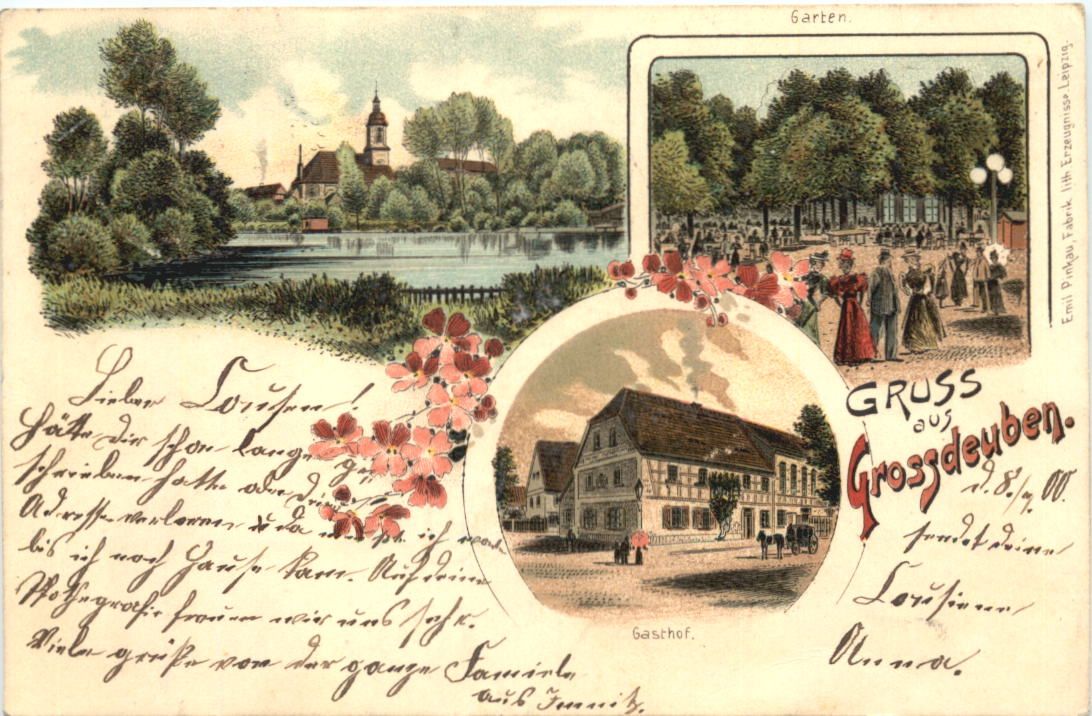 Garten.
Emil Pinkau, Fabrik lith Erzeugnisse. Leipzig.
GRUSS
aus
Grossdeuben.
Gasthof.
Lieber Cousen!
Hätte dir schon lange ge
schrieben hatte aber De
Adresse verloren u da ich
bis ich nach Hause kam. Auf deine
Photografie freuen wir uns sehr.
Viele grüße von der ganze Famiele
aus
d. 8./ 00.
sendet deine
Cousiene
Anna.